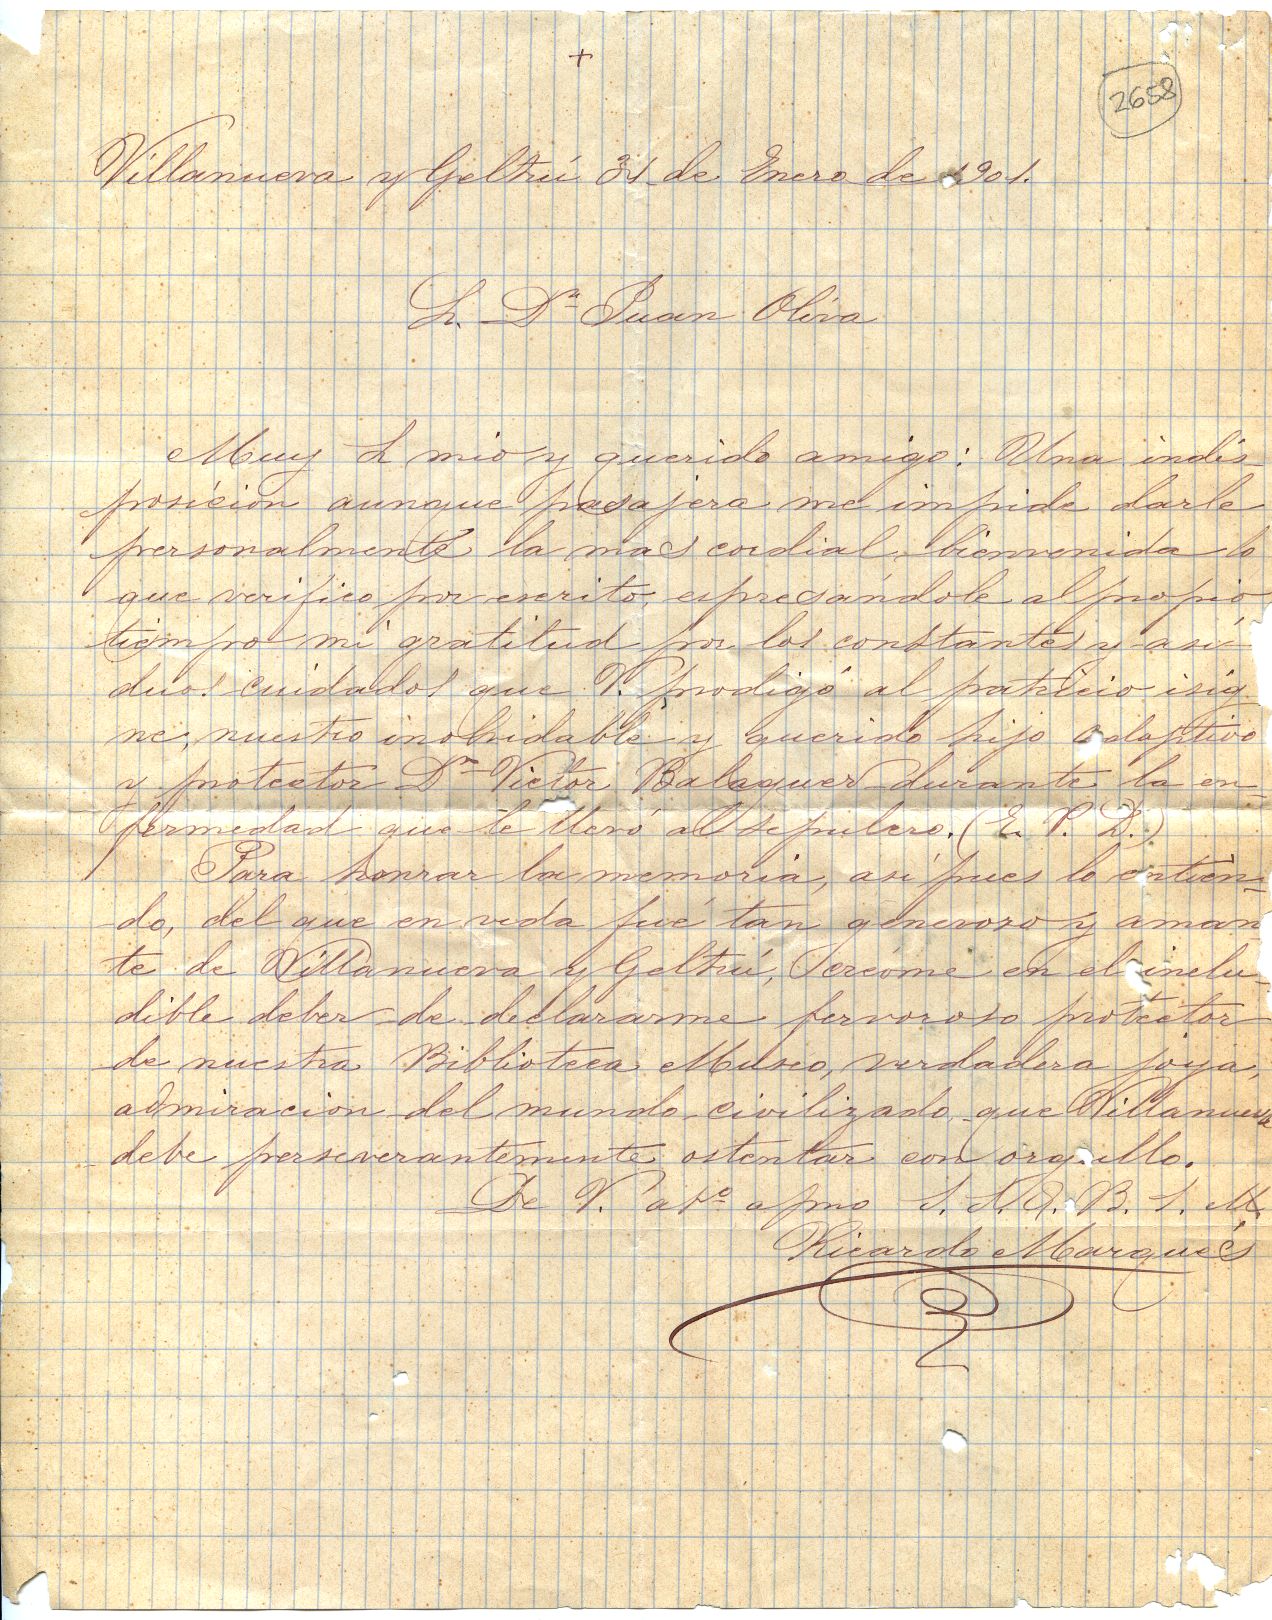 +
2658
Villanueva y Geltrú 31 de Enero de 1901.
S. Dn Juan Oliva
Muy S mio y querido amigo: Una indis-
posicion aunque pasajera me impide darle
personalmente la mas cordial bienvenida lo
que verifico por escrito, espresándole al propio
tiempo mi gratitud por los constantes y asi-
duos cuidados que V. prodigó al patricio isig-
ne, nuestro inolvidable y querido hijo adoptivo
y protector Dn Victor Balaguer durante la en-
fermedad que le llevó al sepulcro. (E. P. D.)
Para honrar la memoria, así pues lo entien-
do, del que en vida fué tan generoso y aman
te de Villanueva y Geltrú, creóme en el inelu-
dible deber de declararme fervoroso protector
de nuestra Biblioteca Museo, verdadera joya,
admiracion del mundo civilizado, que Villanueva
debe perseverantemente ostentar con orgullo.
De V. atto afmo S. S. Q. B. S. M.
Ricardo Marqués